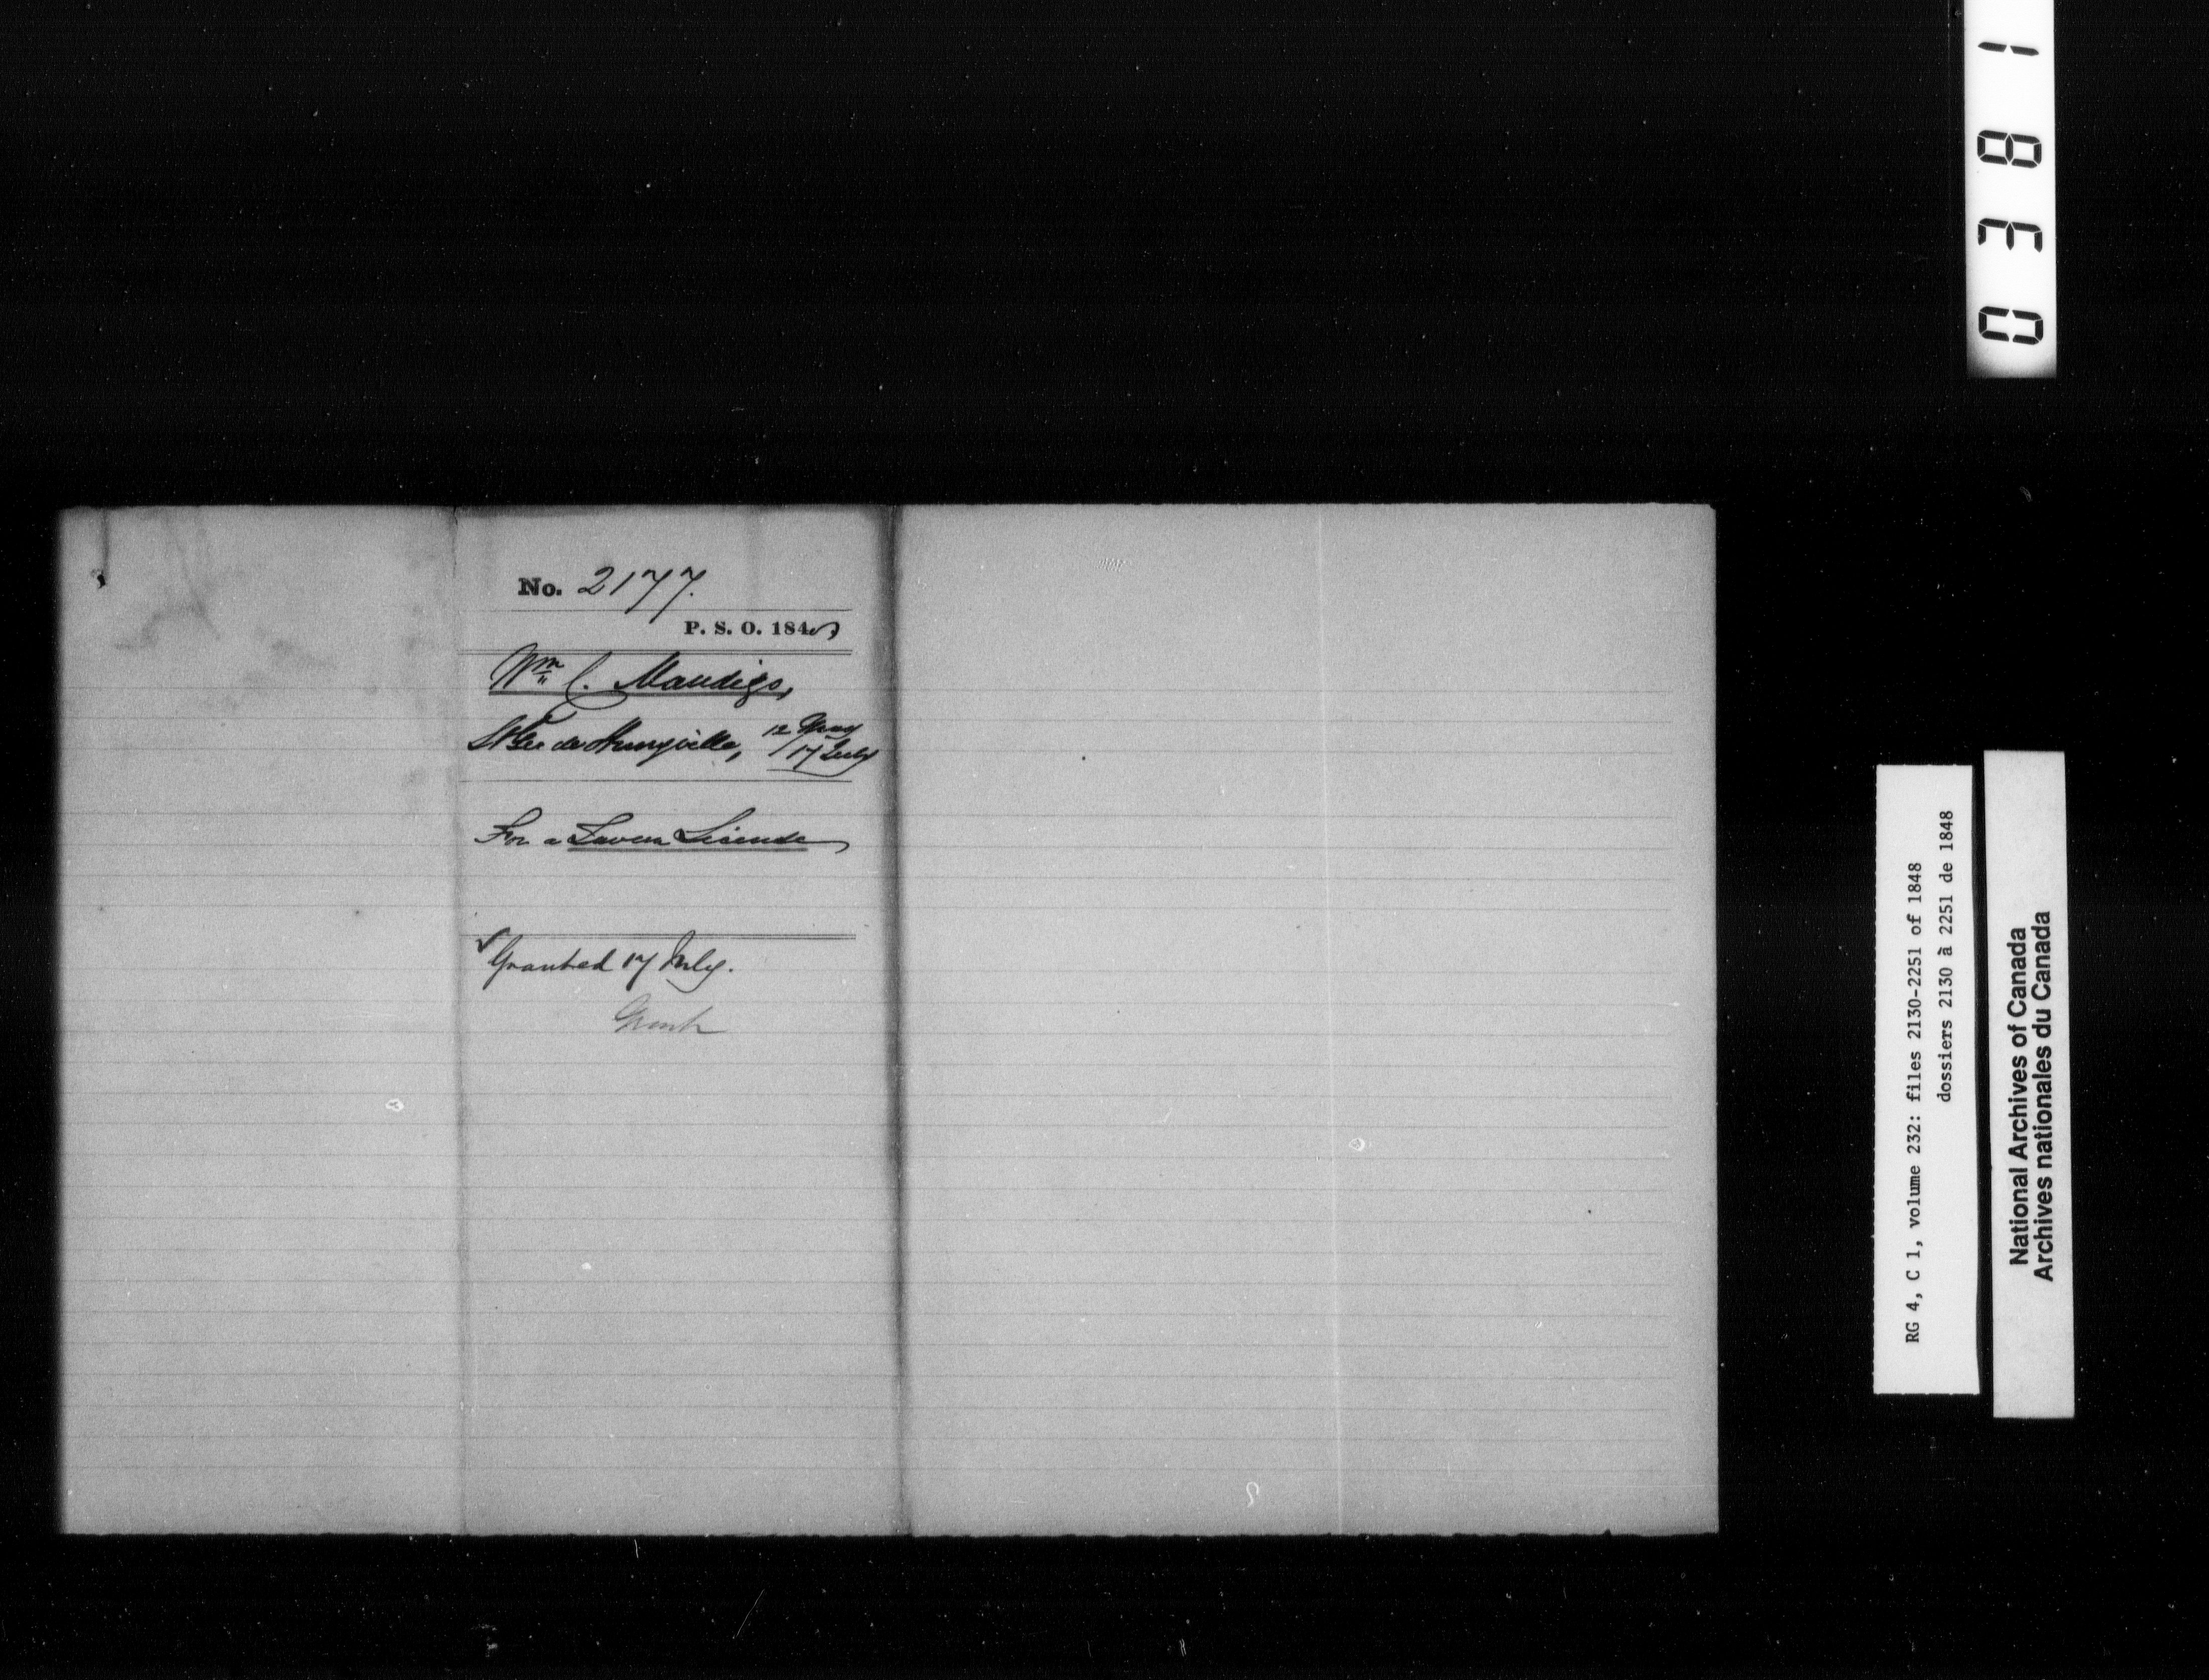 0381
No. 2177.
P. S. O. 1848
Wm C. Mandigo,
St Geo de Henryville, 12 May / 17 July
For a Tavern License
Granted 17 July.
RG 4, C 1, volume 232: files 2130-2251 of 1848
dossiers 2130 à 2251 de 1848
National Archives of Canada
Archives nationales du Canada